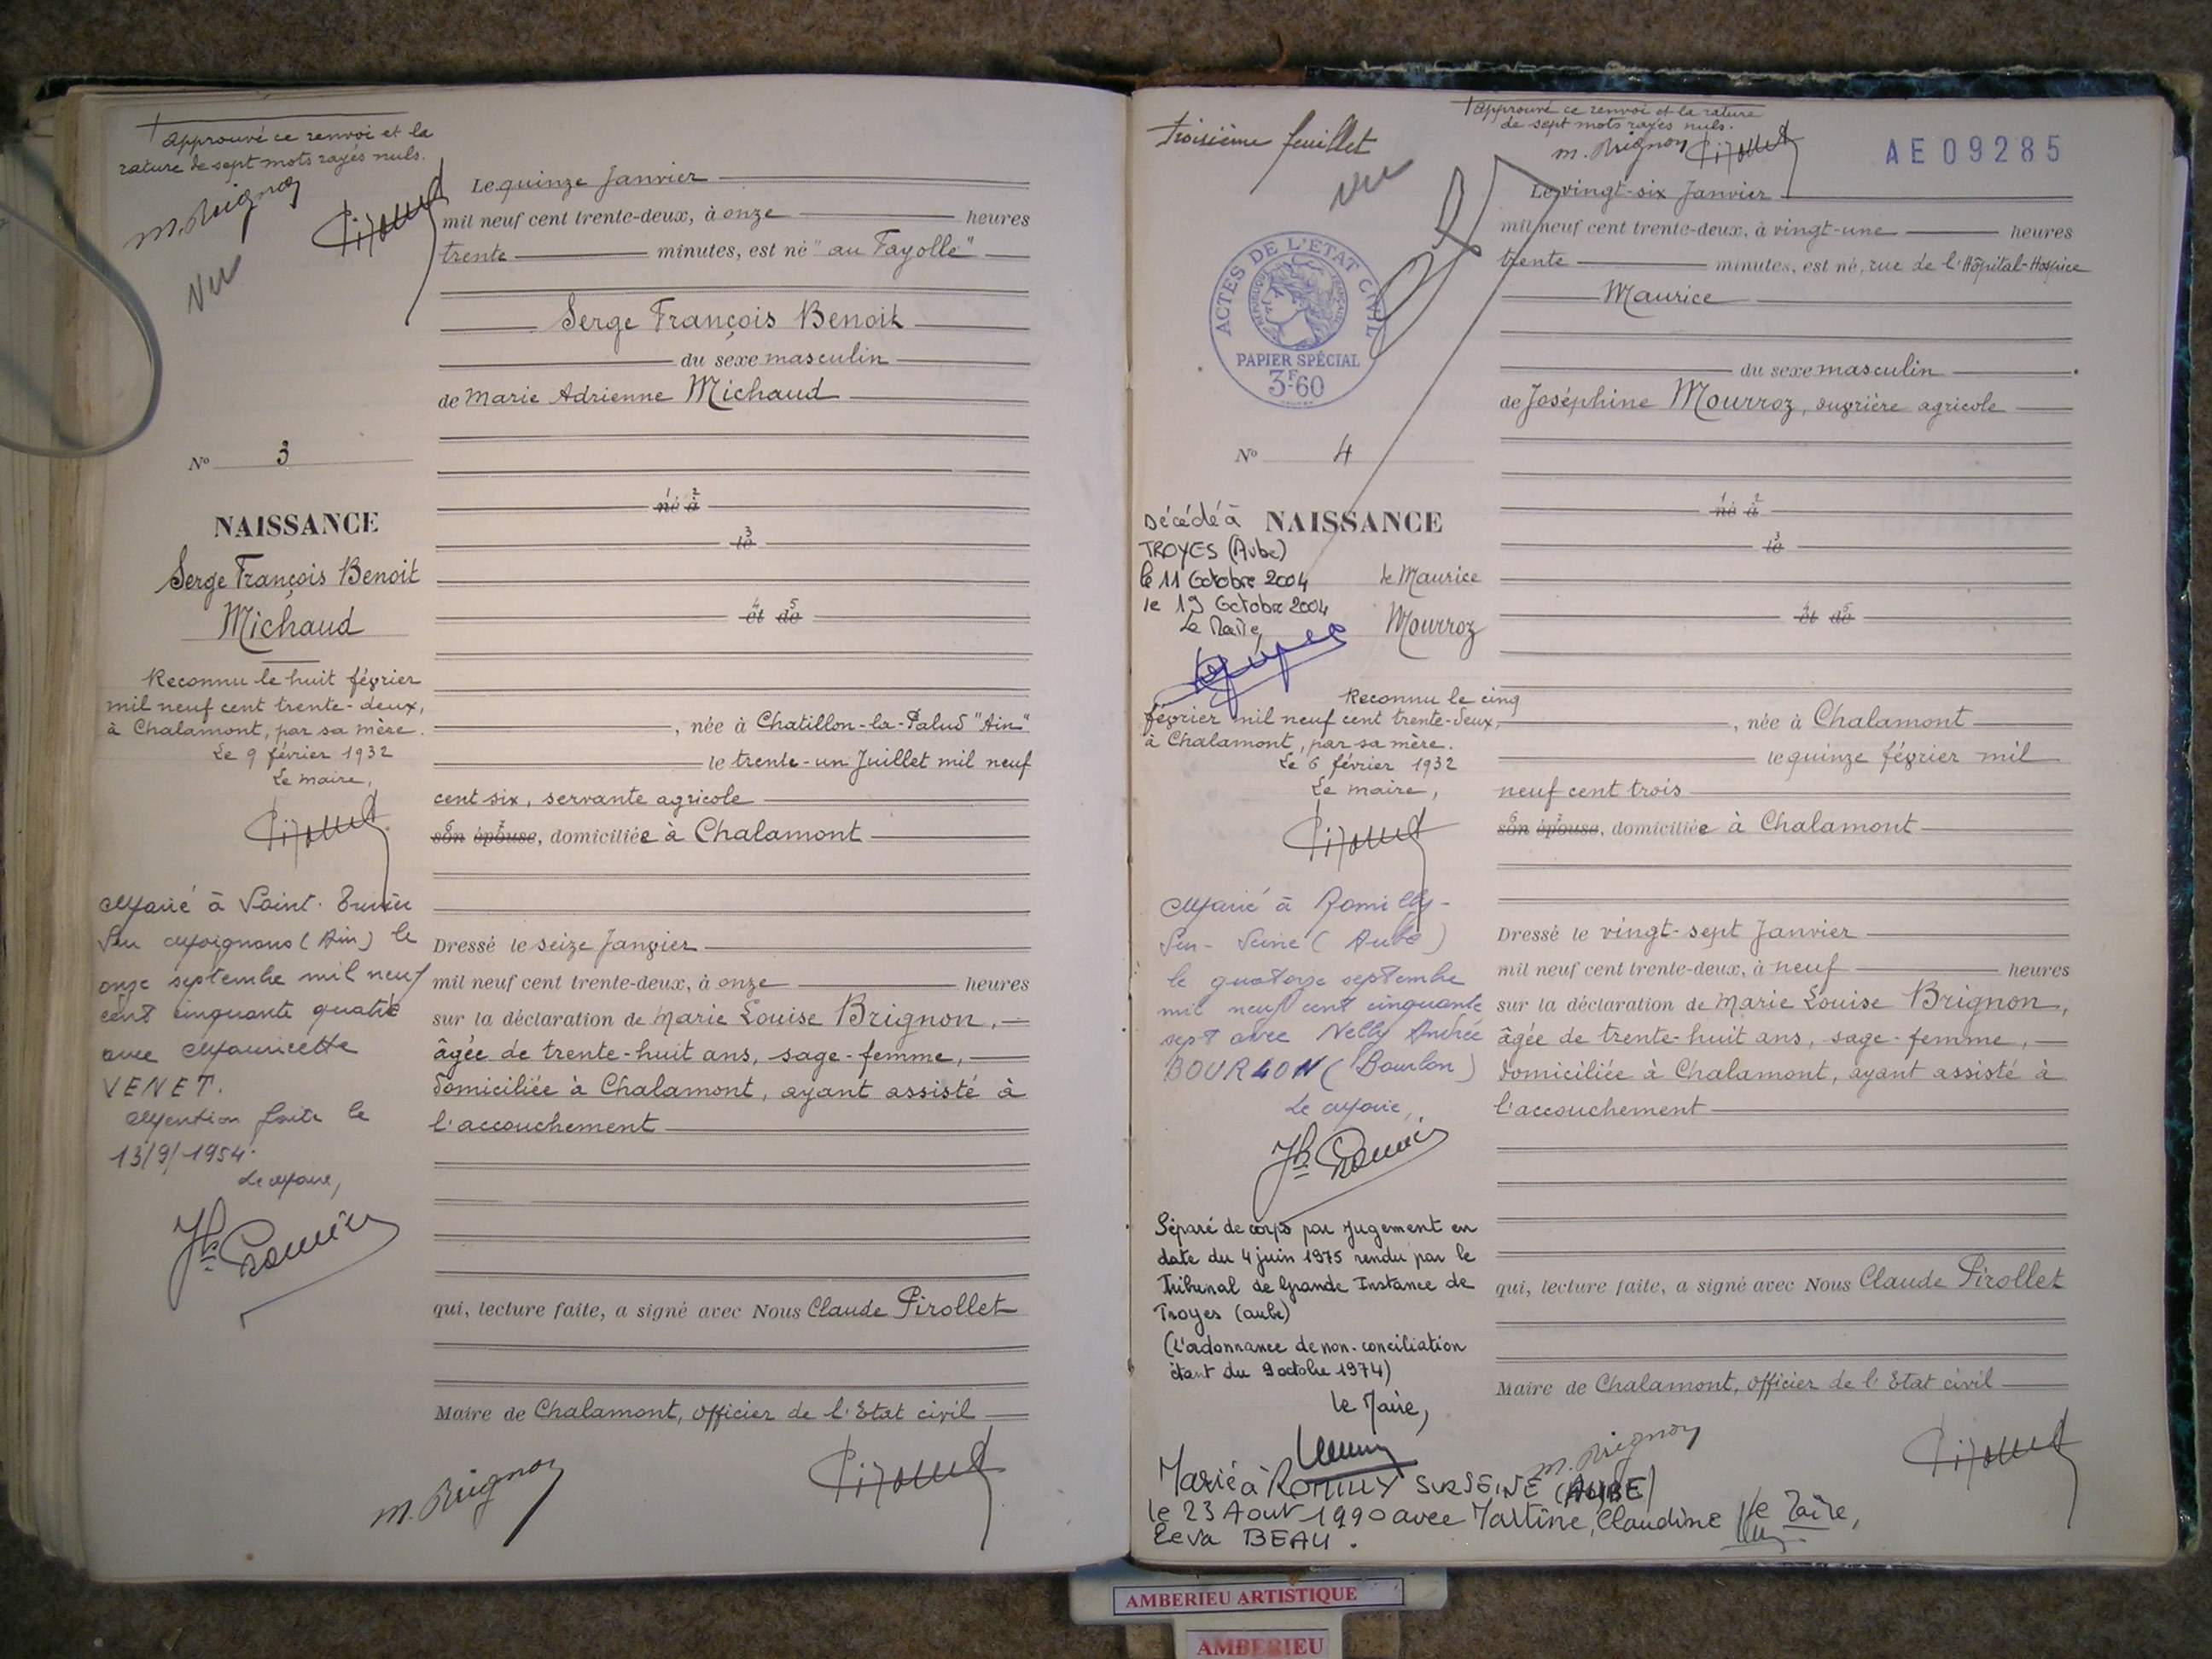 Approuvé ce renvoi et la
rature de sept mots rayés nuls.
M. Brignon
Vu
Le quinze Janvier
mil neuf cent trente-deux, à onze heures
trente minutes, est né "au Fayolle"
Serge François Benoit
du sexe masculin
de Marie Adrienne Michaud
né 1 à 2
le 3
et 4 de 5
, née à Chatillon-la-Palud "Ain"
le trente-un Juillet mil neuf
cent six, servante agricole
son 6 épouse 7, domiciliée à Chalamont
Dressé le seize Janvier
mil neuf cent trente-deux, à onze heures
sur la déclaration de Marie Louise Brignon,
âgée de trente-huit ans, sage-femme,
domiciliée à Chalamont, ayant assisté à
l'accouchement
qui, lecture faite, a signé avec Nous Claude Pirollet
Maire de Chalamont, officier de l'Etat civil
M. Brignon
N° 3
NAISSANCE
Serge François Benoit
Michaud
Reconnu le huit février
mil neuf cent trente-deux,
à Chalamont, par sa mère.
Le 9 février 1932
Le maire,
Marié à Saint-
(Ain) le
onze septembre mil neuf
cent cinquante quatre
avec Mauricette
VENET.
Mention faite le
13/9/1954.
Le Maire,
Troisième feuillet
Vu
Approuvé ce renvoi et la rature
de sept mots rayés nuls.
M. Brignon
AE 09285
ACTES DE L'ÉTAT CIVIL
RÉPUBLIQUE FRANÇAISE
PAPIER SPÉCIAL
3F.60
Le vingt-six Janvier
mil neuf cent trente-deux, à vingt-une heures
trente minutes, est né, rue de l'Hôpital-Hospice
Maurice
du sexe masculin
de Joséphine Mourroz, ouvrière agricole
né 1 à 2
le 3
et 4 de 5
, née à Chalamont
le quinze février mil
neuf cent trois
son 6 épouse 7, domiciliée à Chalamont
Dressé le vingt-sept Janvier
mil neuf cent trente-deux, à neuf heures
sur la déclaration de Marie Louise Brignon,
âgée de trente-huit ans, sage-femme,
domiciliée à Chalamont, ayant assisté à
l'accouchement
qui, lecture faite, a signé avec Nous Claude Pirollet
Maire de Chalamont, officier de l'Etat civil
M. Brignon
N° 4
NAISSANCE
de Maurice
Mourroz
Décédé à
TROYES (Aube)
le 11 Octobre 2004
le 19 Octobre 2004
Le Maire
Reconnu le cinq
février mil neuf cent trente-deux,
à Chalamont, par sa mère.
Le 6 février 1932
Le maire,
Marié à Romilly-
Sur-Seine (Aube)
le quatorze septembre
mil neuf cent cinquante
sept avec Nelly Andrée
BOURLON (Bourlon)
Le Maire,
Séparé de corps par jugement en
date du 4 juin 1975 rendu par le
Tribunal de Grande Instance de
Troyes (aube)
(L'ordonnance de non-conciliation
étant du 9 octobre 1974)
le Maire,
Marié à ROMILLY SUR SEINE (AUBE)
le 23 Aout 1990 avec Martine, Claudine
BEAU.
le Maire,
AMBERIEU ARTISTIQUE
AMBERIEU